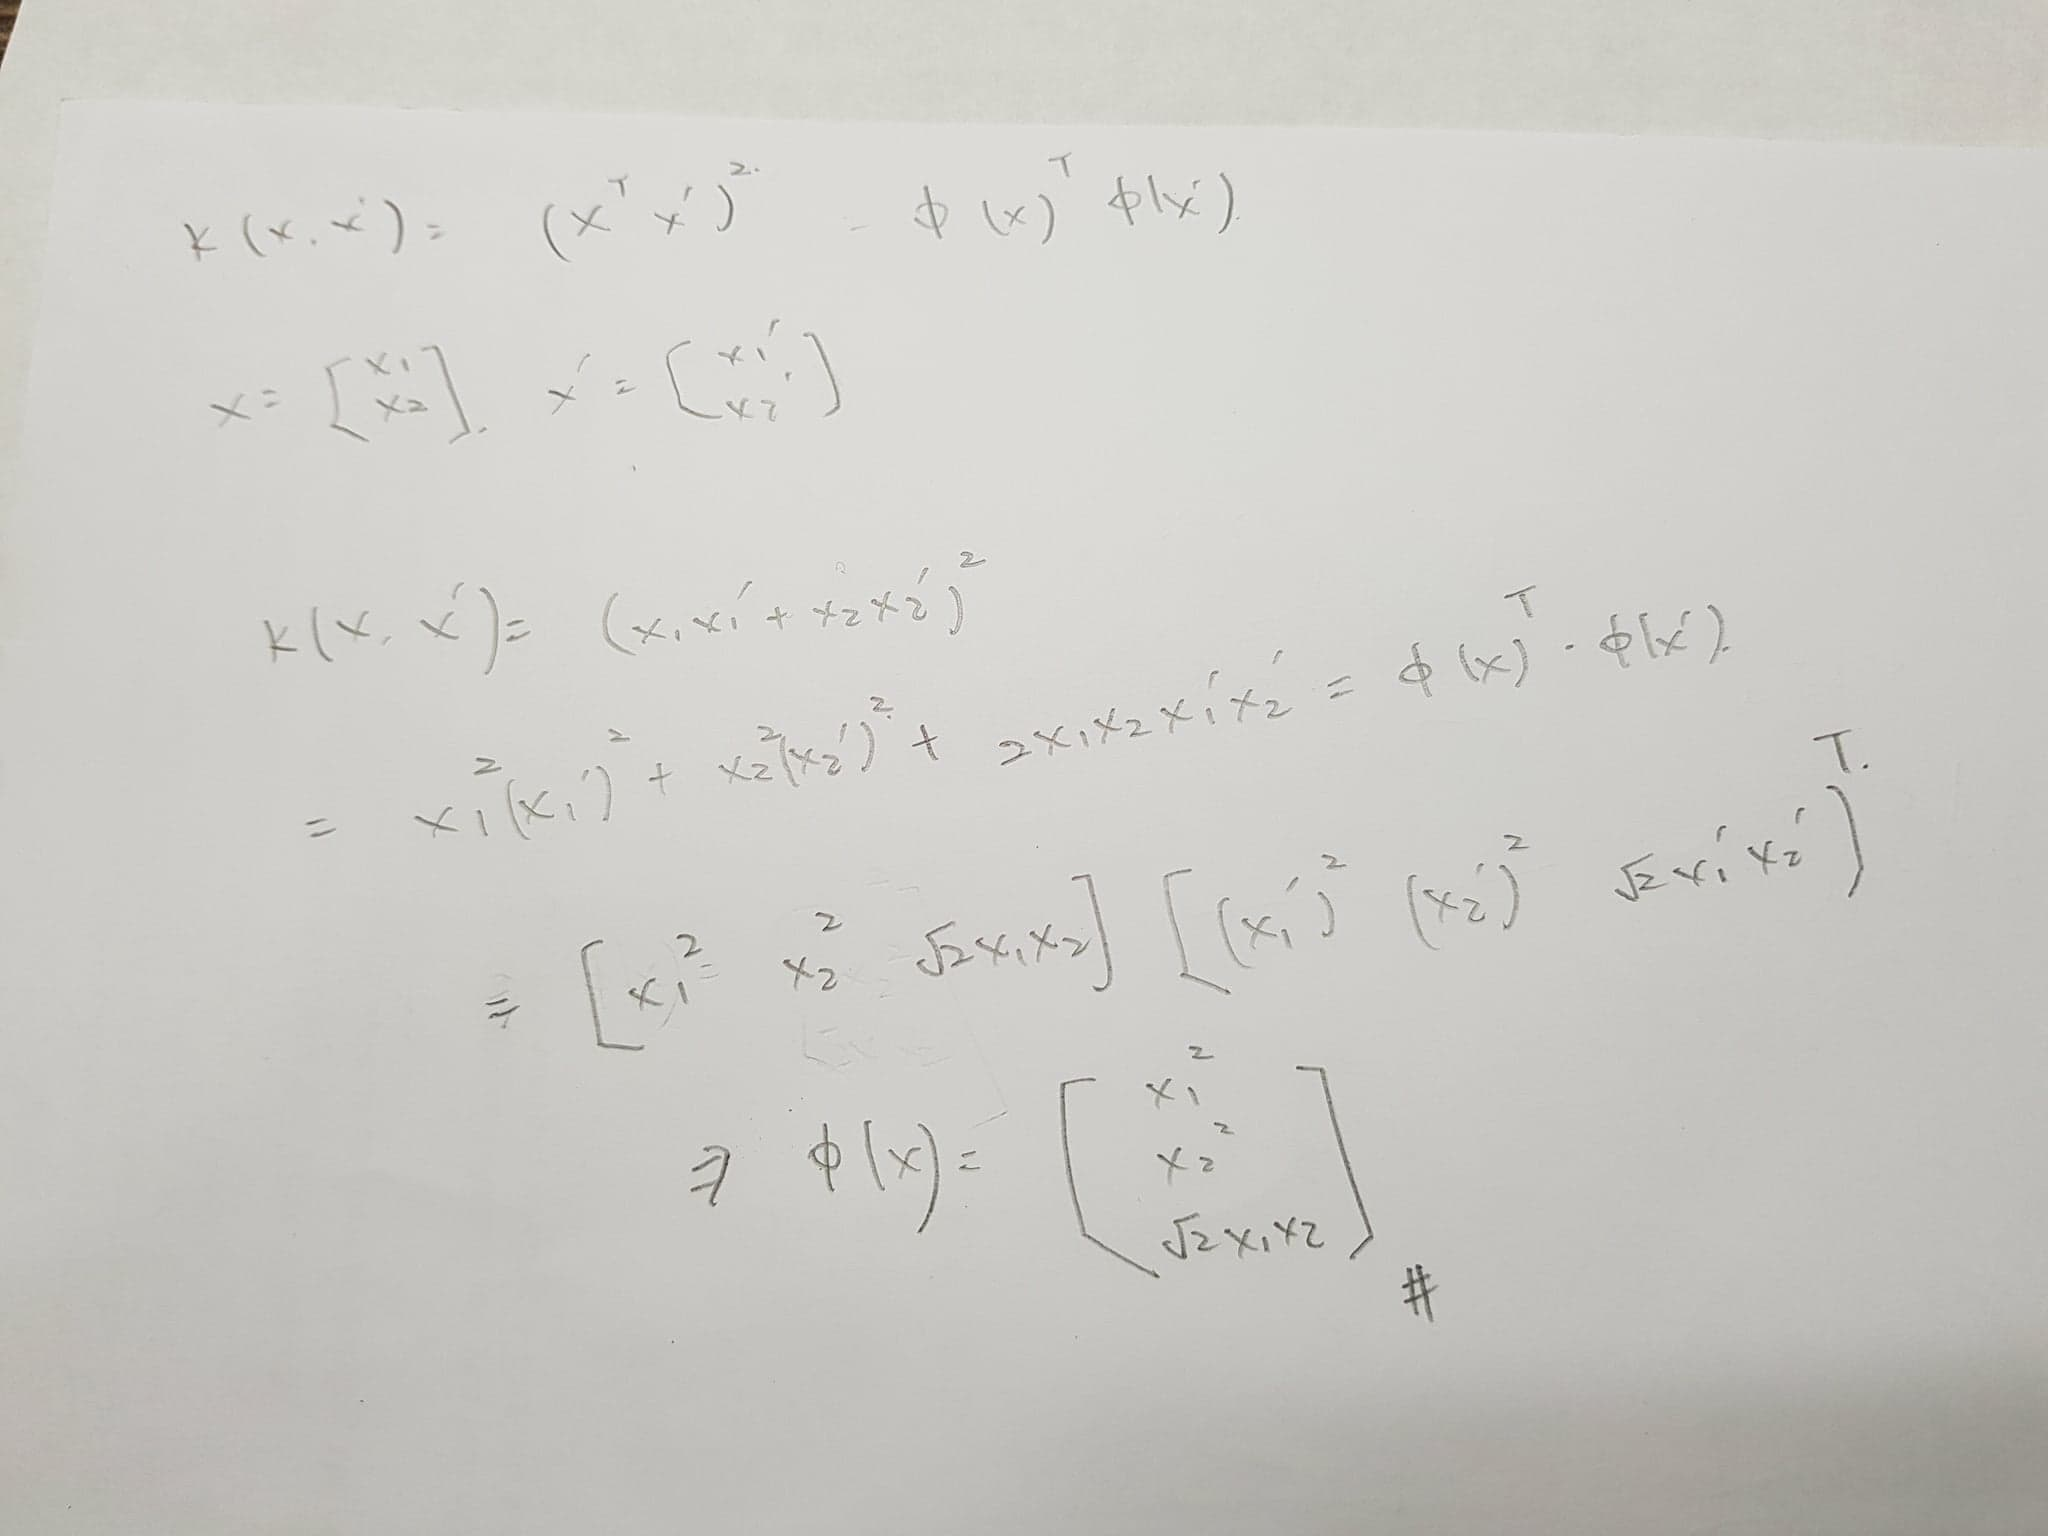 K(x, x') = (xᵀx')² = φ(x)ᵀ φ(x').
x = [x₁ x₂], x' = [x₁' x₂']
K(x, x') = (x₁x₁' + x₂x₂')²
= x₁²(x₁')² + x₂²(x₂')² + 2x₁x₂x₁'x₂' = φ(x)ᵀ · φ(x').
= [x₁² x₂² √2x₁x₂] [(x₁')² (x₂')² √2x₁'x₂']ᵀ.
⇒ φ(x) = [x₁² x₂² √2x₁x₂] #